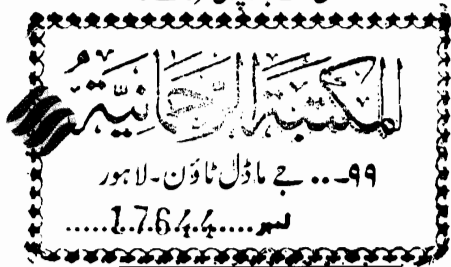 المكتبة الرحمانية
۹۹... جے ماڈل ٹاؤن۔ لاہور
نمبر....17644.....